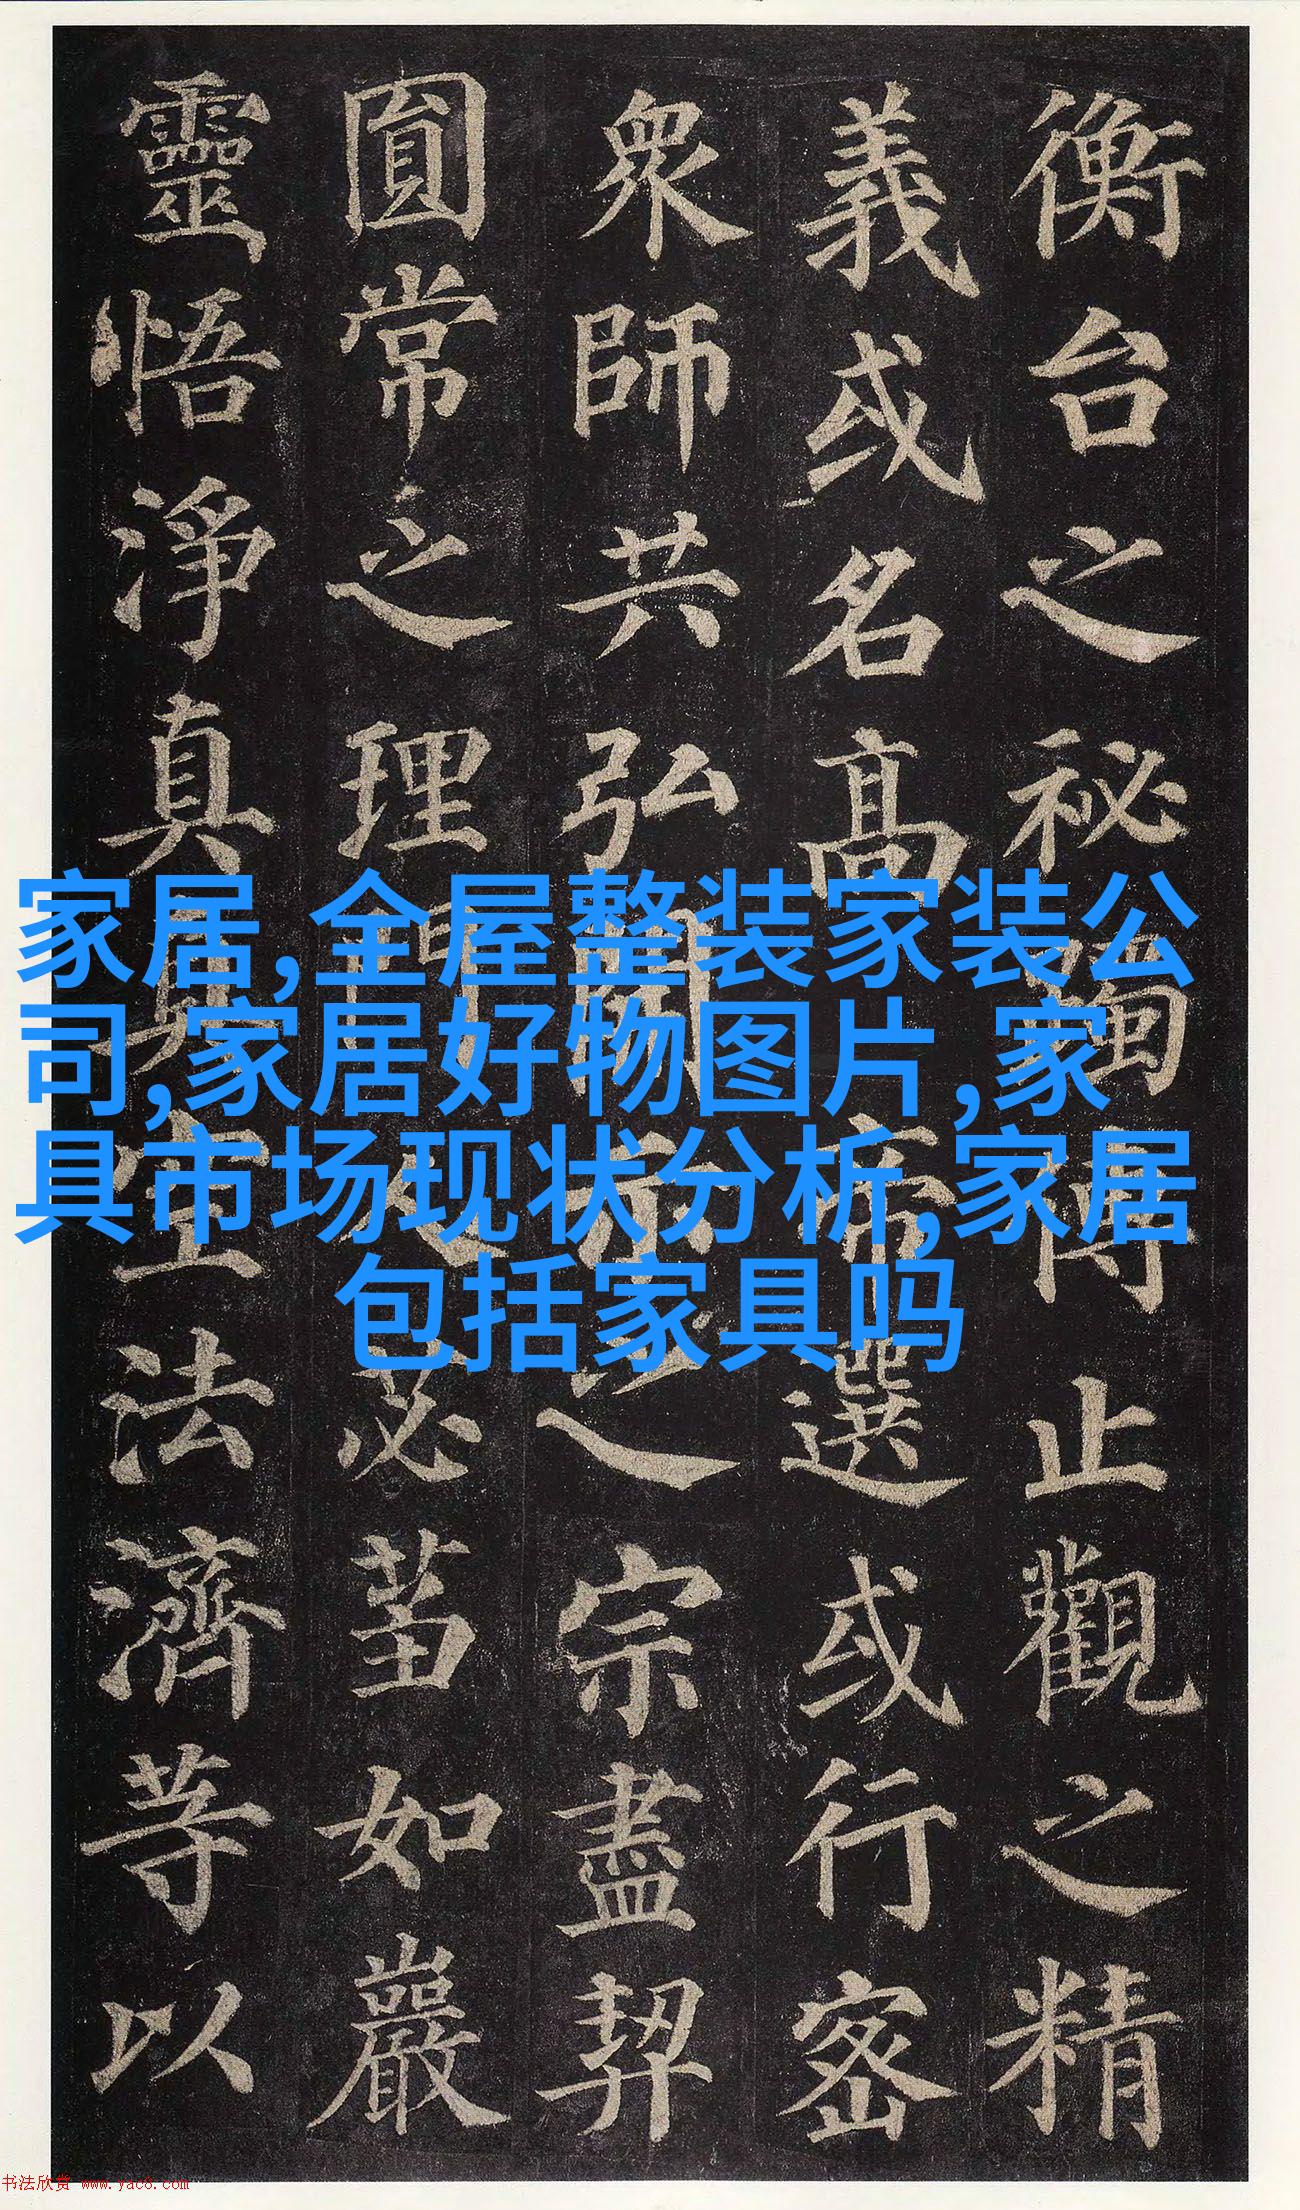 衡台之秘躅傳止觀之精
義或名高帝選或行密
衆師共弘開示之宗盡契
圓常之理門人苾芻如巖
靈悟淨真真空法濟等以
家居,全屋整装家装公
司,家居好物图片,家
具市场现状分析,家居
包括家具吗
书法欣赏 www.yac8.com